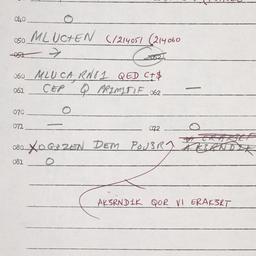 040 O
050 MLUCTEN (/214051 (214060
051 →
060 MLUCA, RNI1 QED C+$
061 CEP Q PRIMIFIF 062 —
070 O
071 — 072 O
080 XOGIZEN DEM POUSR
081 O
AKSRNDIK QOR VI ERAKSRT